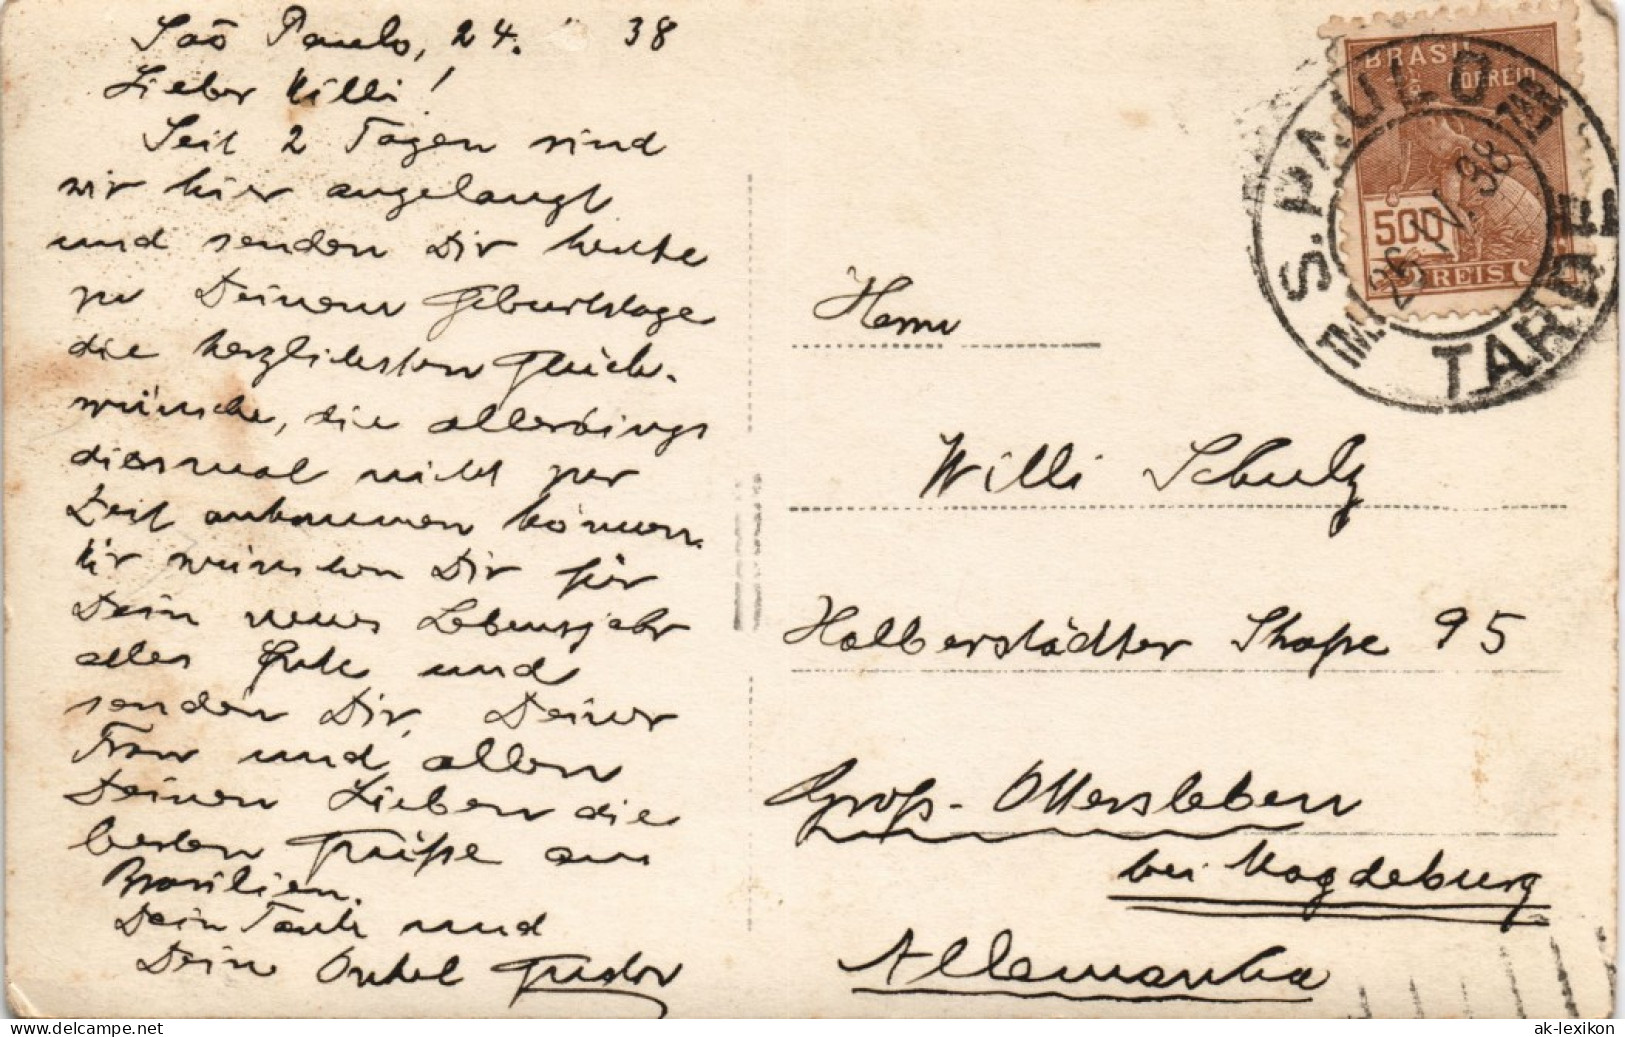 São Paulo, 24. 38
Lieber Willi!
Seit 2 Tagen sind
wir hier angelangt
und senden Dir heute
zu Deinem Geburtstage
die herzlichsten Glück-
wünsche, die allerdings
diesmal nicht zur
Zeit ankommen können.
Wir wünschen Dir für
Dein neues Lebensjahr
alles Gute und
senden Dir, Deiner
Frau und allen
Deinen Lieben die
besten Grüße aus
Brasilien.
Dein Tante und
Deine Onkel
BRASIL
CORREIO
500
REIS
S. PAULO
TARD
Herrn
Willi Schulz
Halberstädter Straße 95
Groß-Ottersleben
bei Magdeburg
Allemanha
www.delcampe.net
ak-lexikon